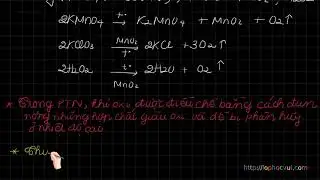 2KMnO₄ —t°→ K₂MnO₄ + MnO₂ + O₂↑
2KClO₃ —MnO₂, t°→ 2KCl + 3O₂↑
2H₂O₂ —t°, MnO₂→ 2H₂O + O₂↑
* Trong PTN, khí oxi được điều chế bằng cách đun
nóng những hợp chất giàu oxi và dễ bị phân hủy
ở nhiệt độ cao
* Thu
https://lophocvui.com